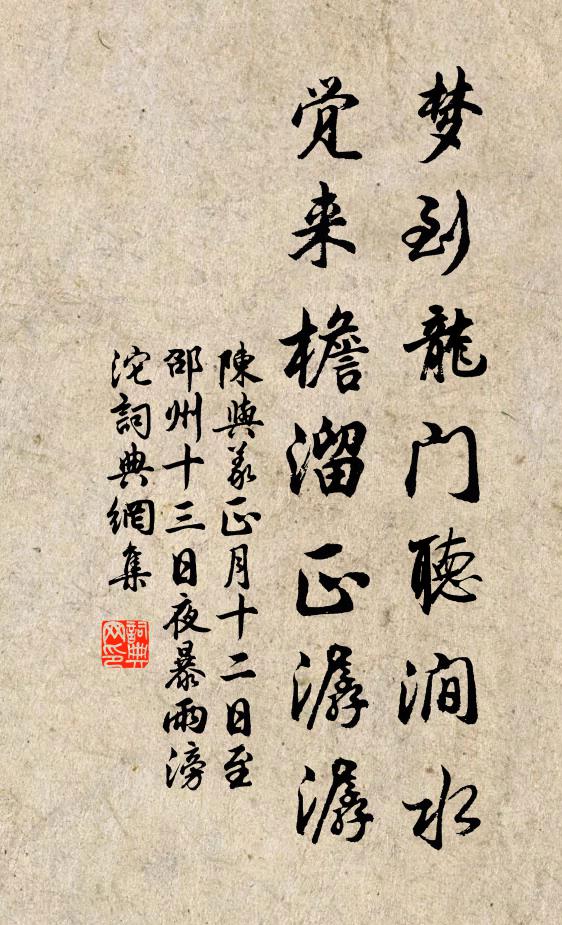 梦到龍门聽澗水
觉来檐溜正潺潺
陳與义正月十二日至
邵州十三日夜暴雨滂
沱詞典網集
詞典
网印